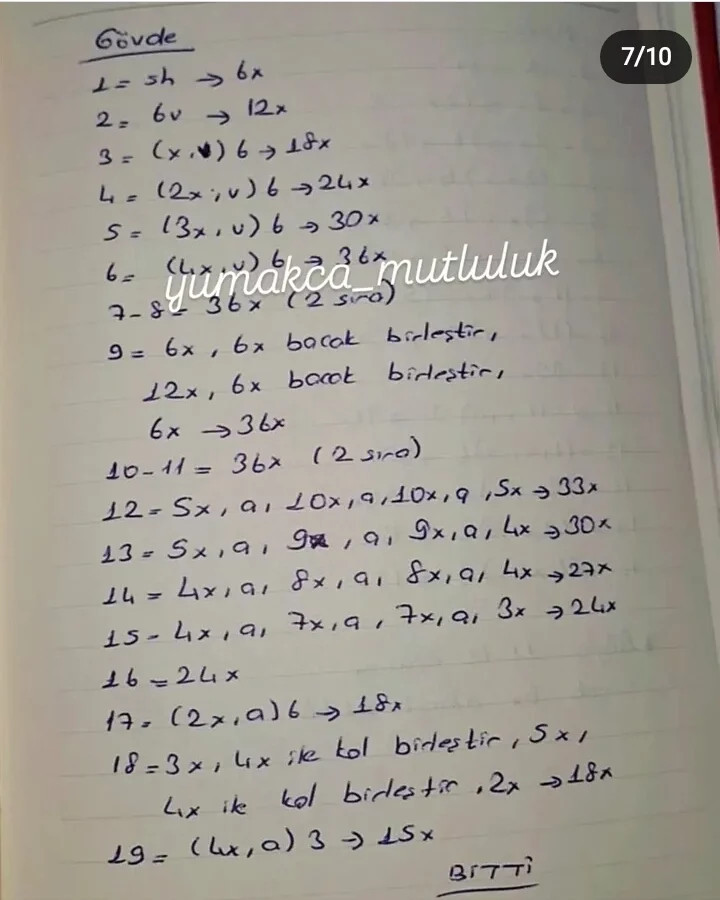 7/10
Gövde
1 = sh → 6x
2 = 6v → 12x
3 = (x, v) 6 → 18x
4 = (2x, v) 6 → 24x
5 = (3x, v) 6 → 30x
6 = (4x, v) 6 → 36x
yumakca_mutluluk
7-8 = 36x (2 sıra)
9 = 6x, 6x bacak birleştir,
12x, 6x bacak birleştir,
6x → 36x
10-11 = 36x (2 sıra)
12 = 5x, a, 10x, a, 10x, a, 5x → 33x
13 = 5x, a, 9x, a, 9x, a, 4x → 30x
14 = 4x, a, 8x, a, 8x, a, 4x → 27x
15 - 4x, a, 7x, a, 7x, a, 3x → 24x
16 = 24x
17 = (2x, a) 6 → 18x
18 = 3x, 4x ile kol birleştir, 5x,
4x ile kol birleştir, 2x → 18x
19 = (4x, a) 3 → 15x
BİTTİ